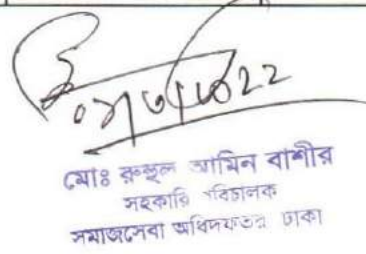 মোঃ রুহুল আমিন বাশীর
সহকারি পরিচালক
সমাজসেবা অধিদফতর ঢাকা